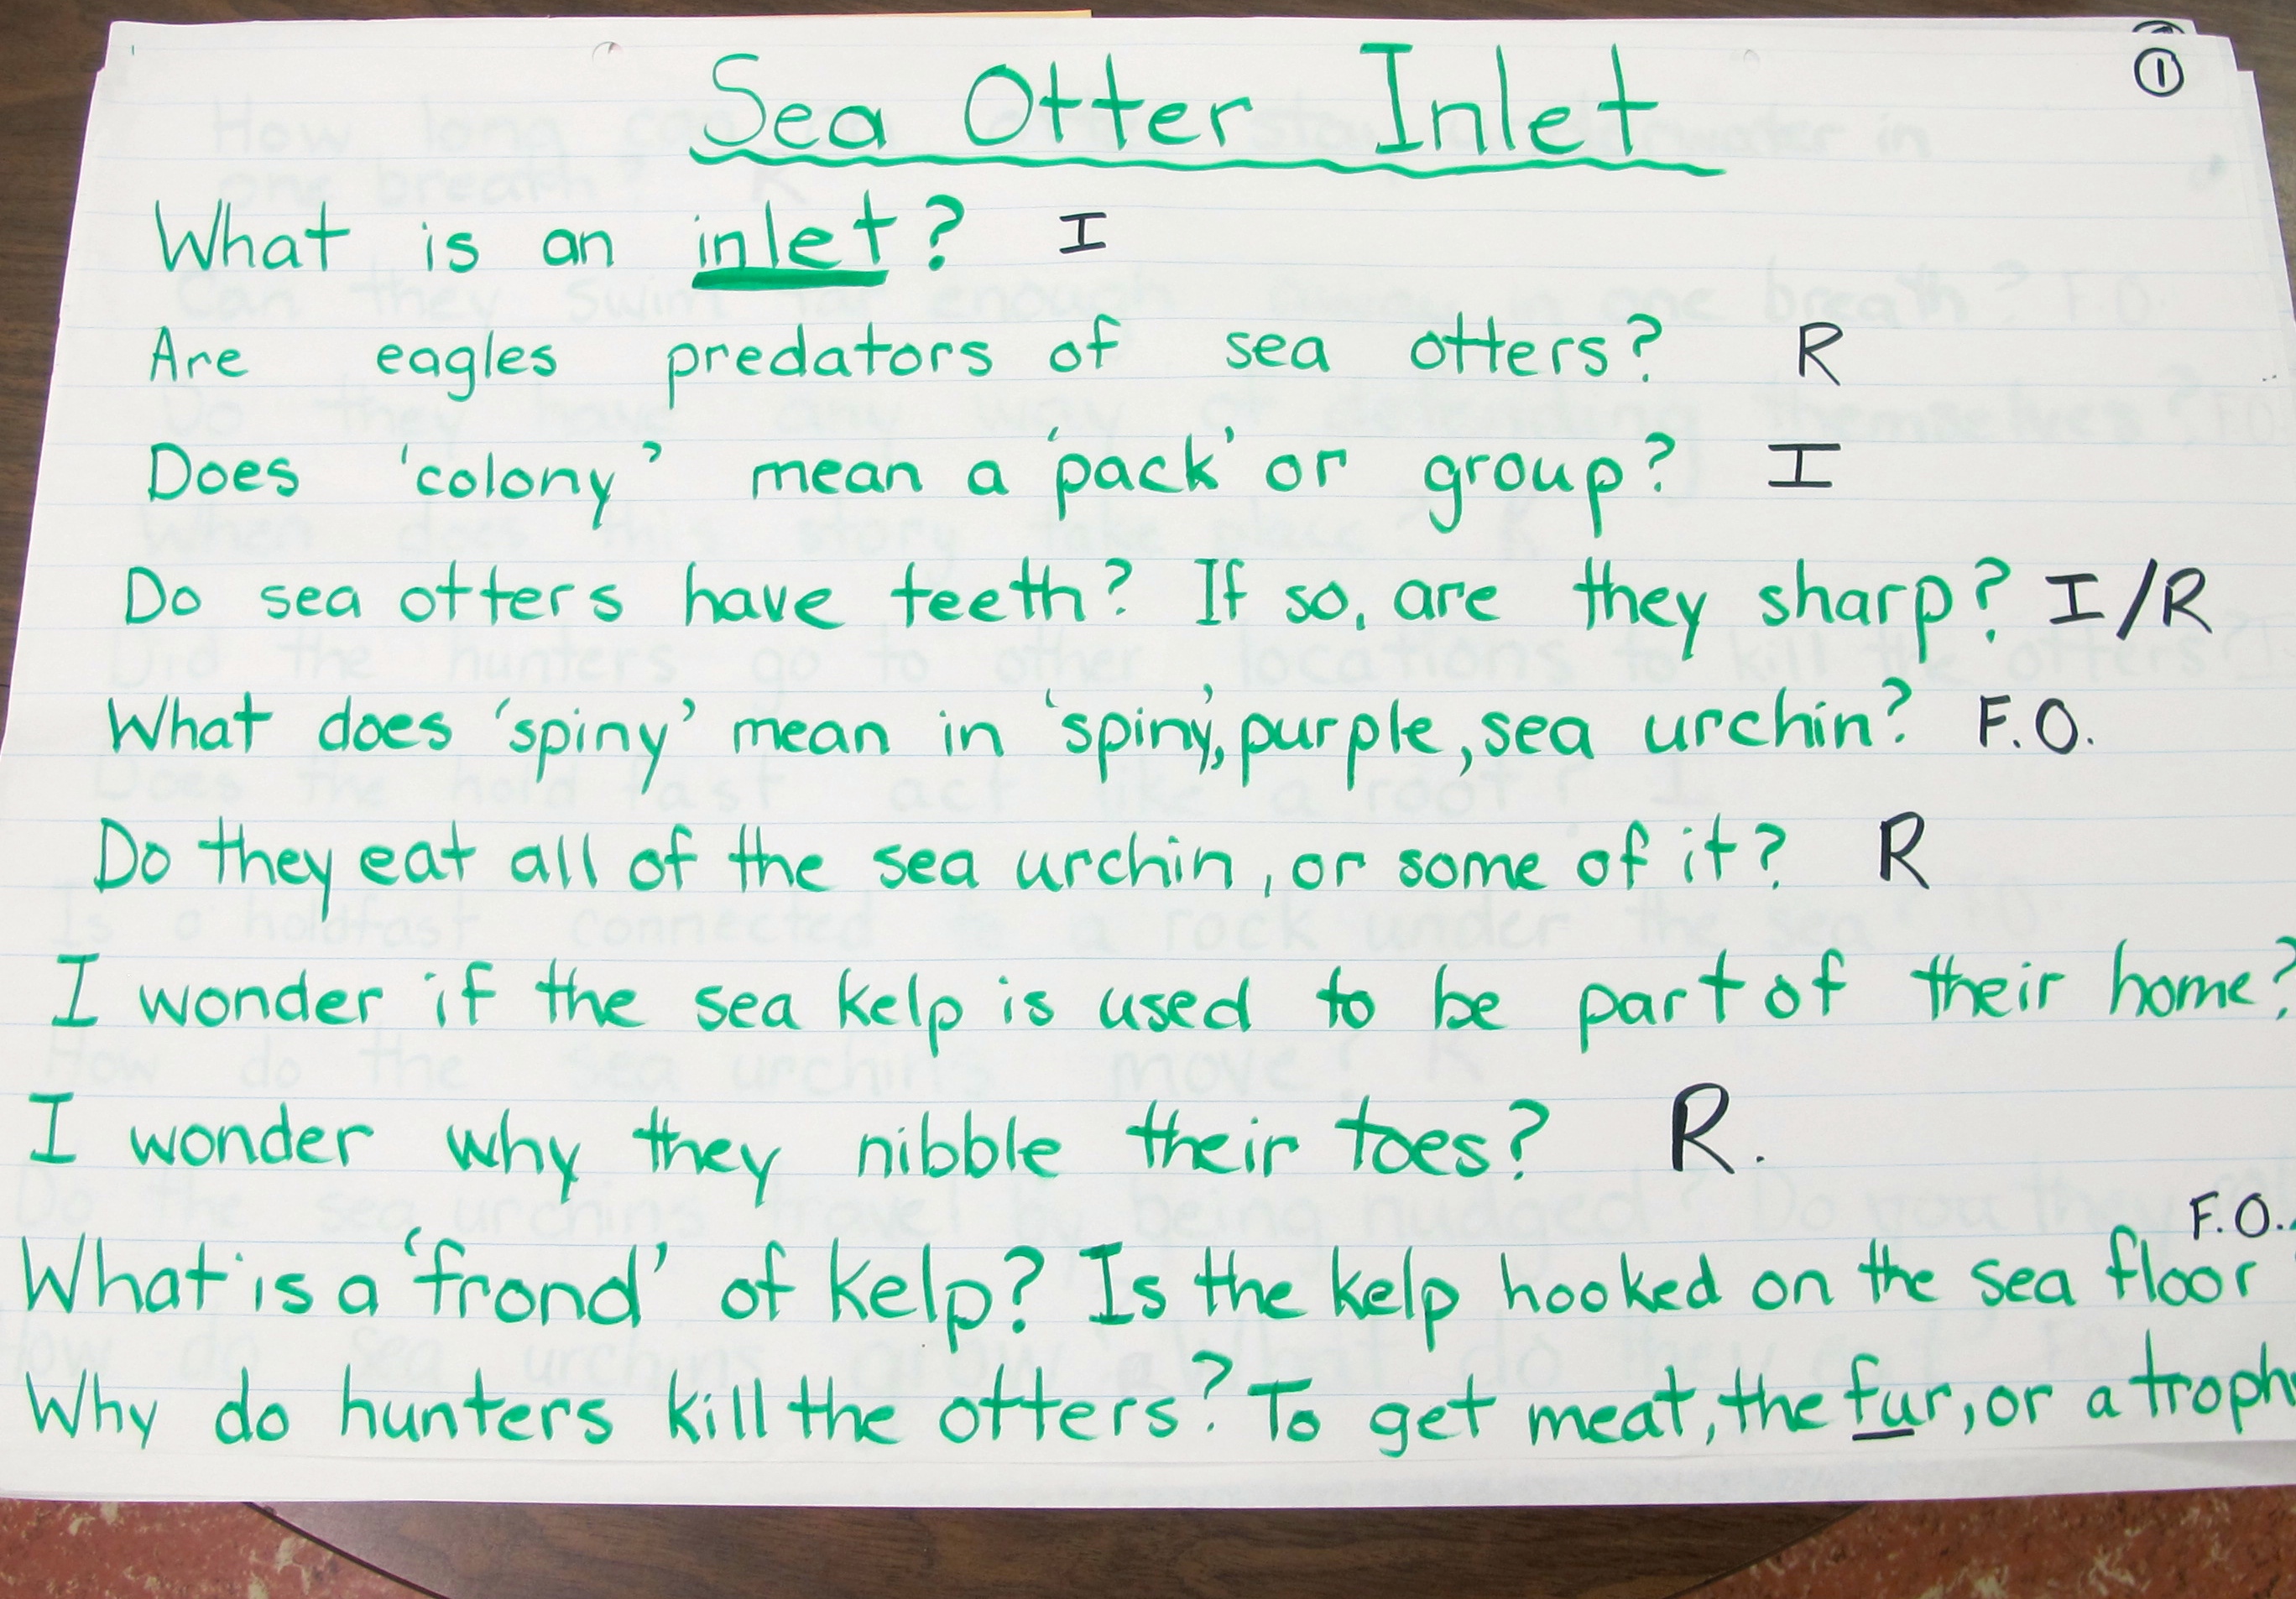 ①
Sea Otter Inlet
What is an inlet? I
Are eagles predators of sea otters? R
Does 'colony' mean a 'pack' or group? I
Do sea otters have teeth? If so, are they sharp? I/R
What does 'spiny' mean in 'spiny', purple, sea urchin? F.O.
Do they eat all of the sea urchin, or some of it? R
I wonder if the sea kelp is used to be part of their home?
I wonder why they nibble their toes? R.
F.O.
What is a 'frond' of kelp? Is the kelp hooked on the sea floor
Why do hunters kill the otters? To get meat, the fur, or a troph